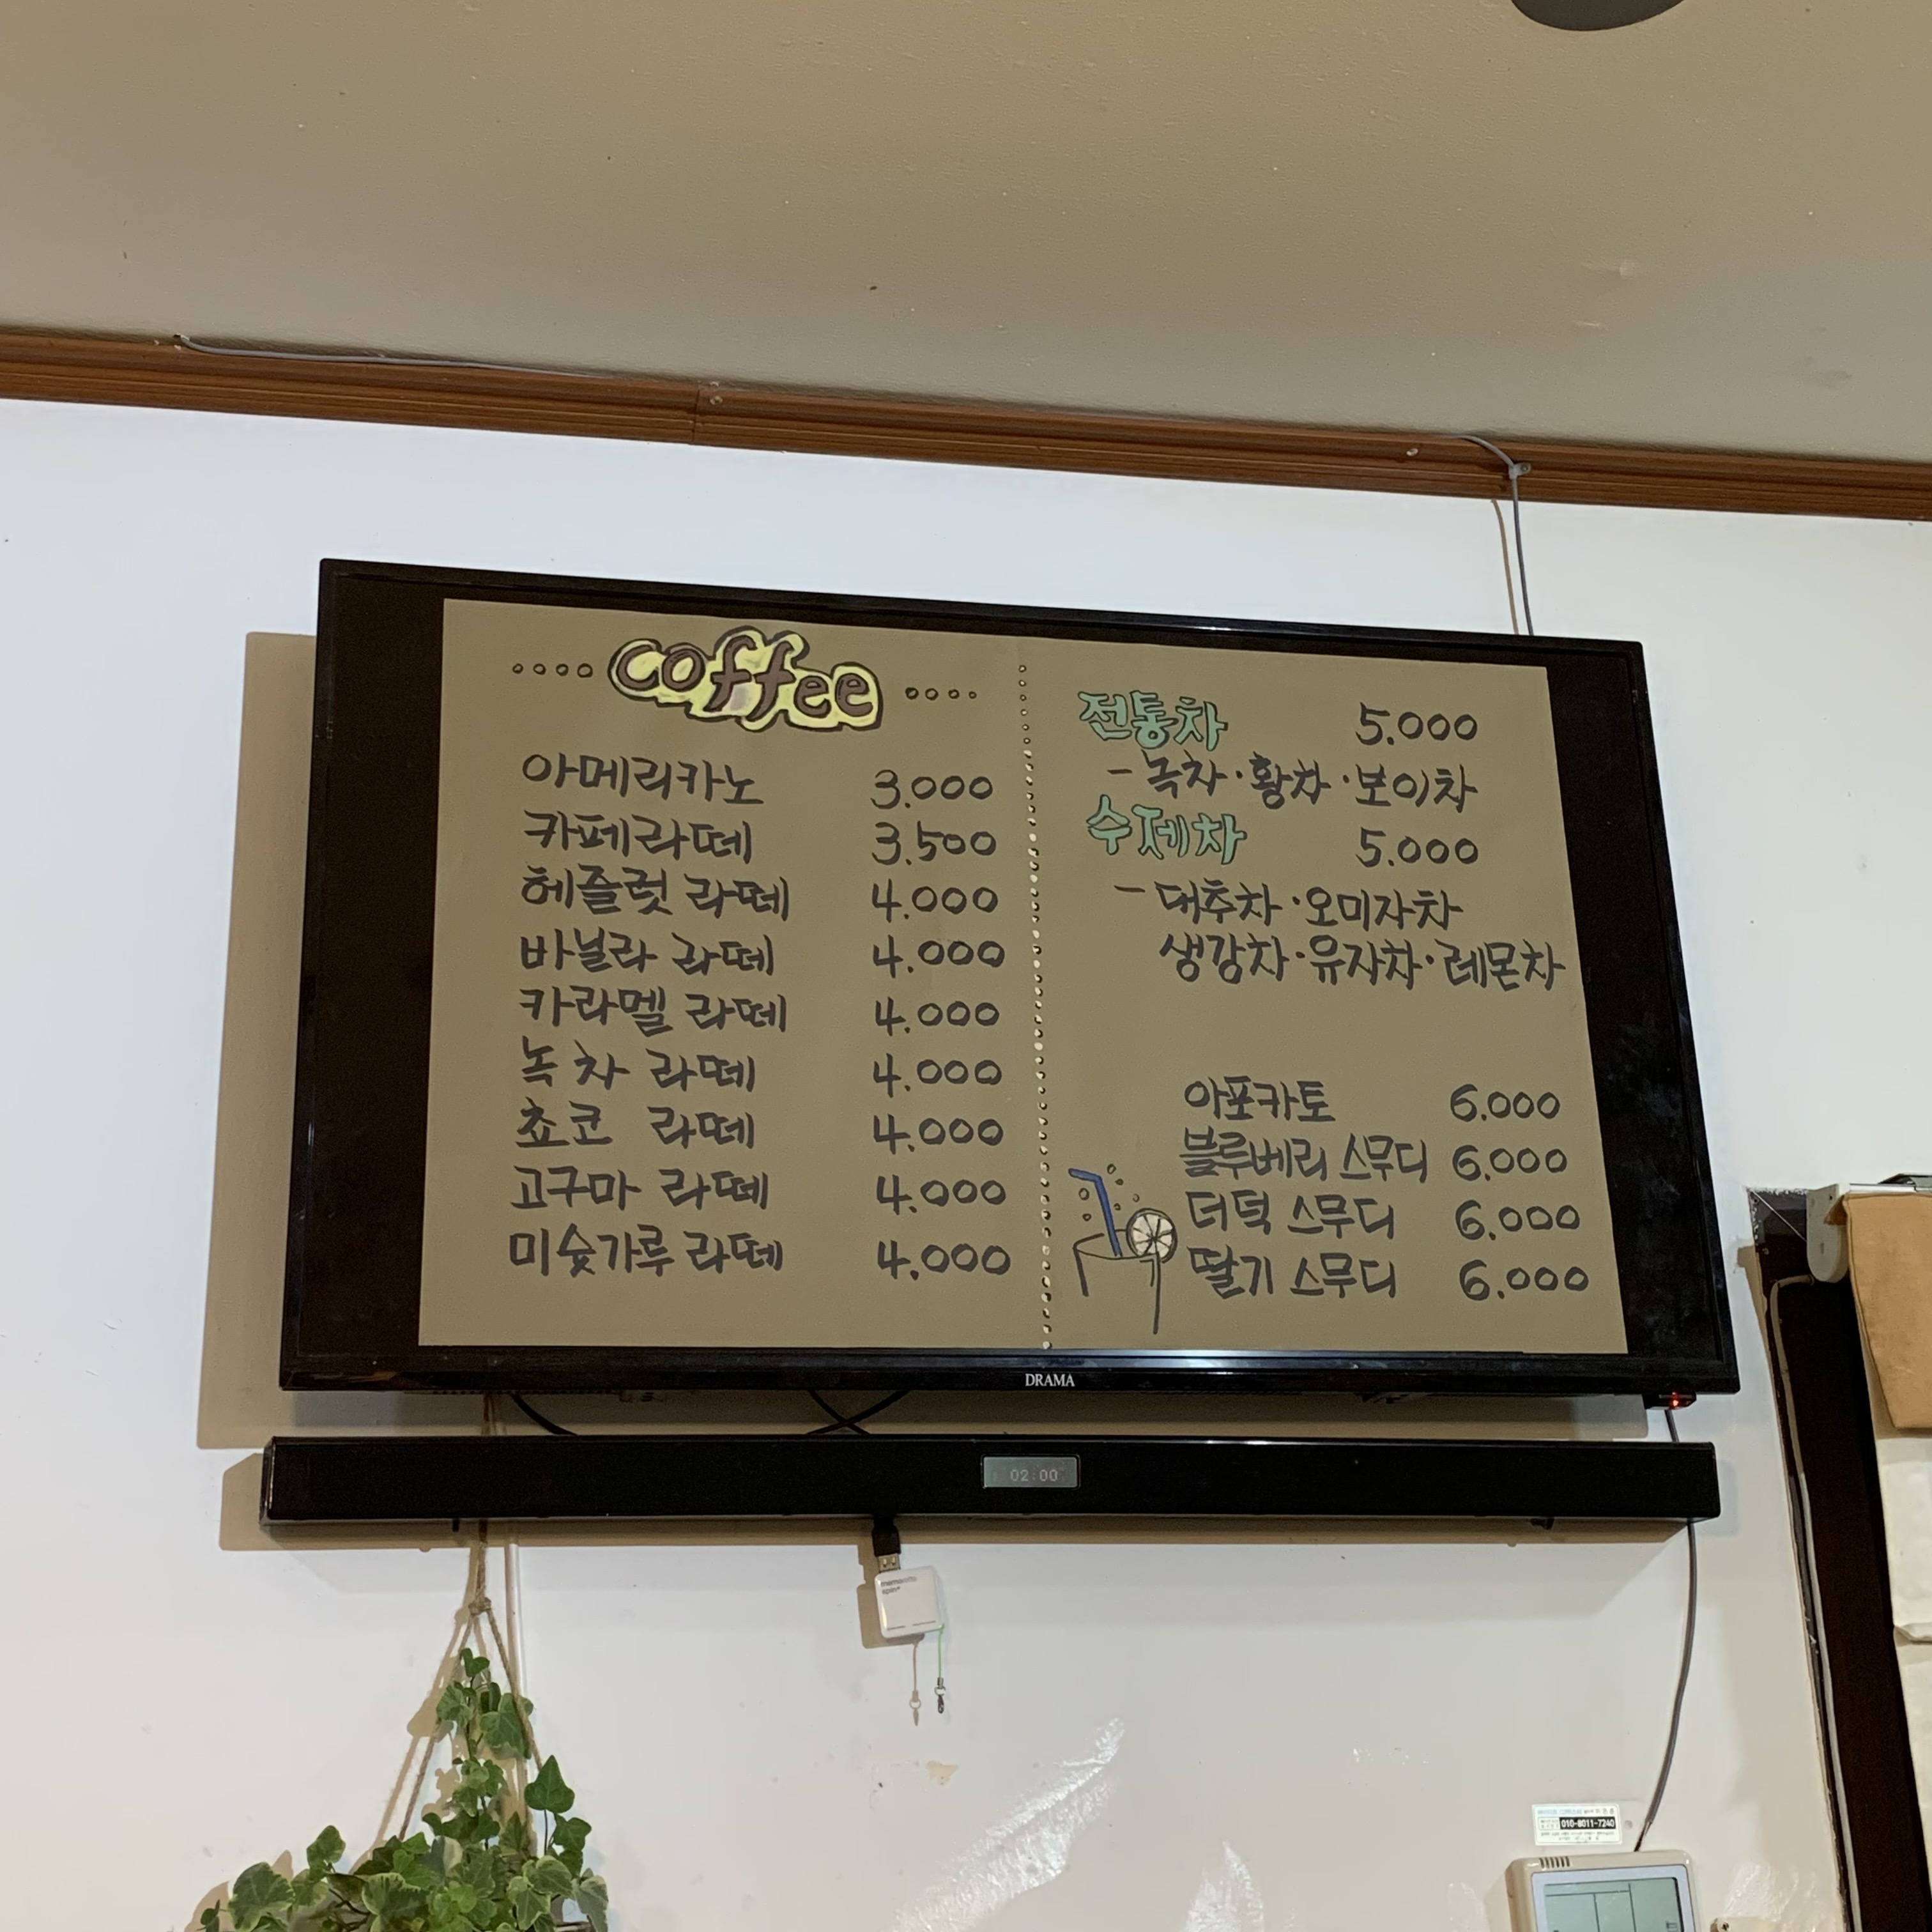 coffee
아메리카노 3.000
카페라떼 3.500
헤즐럿 라떼 4.000
바닐라 라떼 4.000
카라멜 라떼 4.000
녹차 라떼 4.000
쵸코 라떼 4.000
고구마 라떼 4.000
미숫가루 라떼 4.000
전통차 5.000
- 녹차·황차·보이차
수제차 5.000
- 대추차·오미자차
생강차·유자차·레몬차
아포카토 6.000
블루베리 스무디 6.000
더덕 스무디 6.000
딸기 스무디 6.000
DRAMA
02:00
010-8011-7240